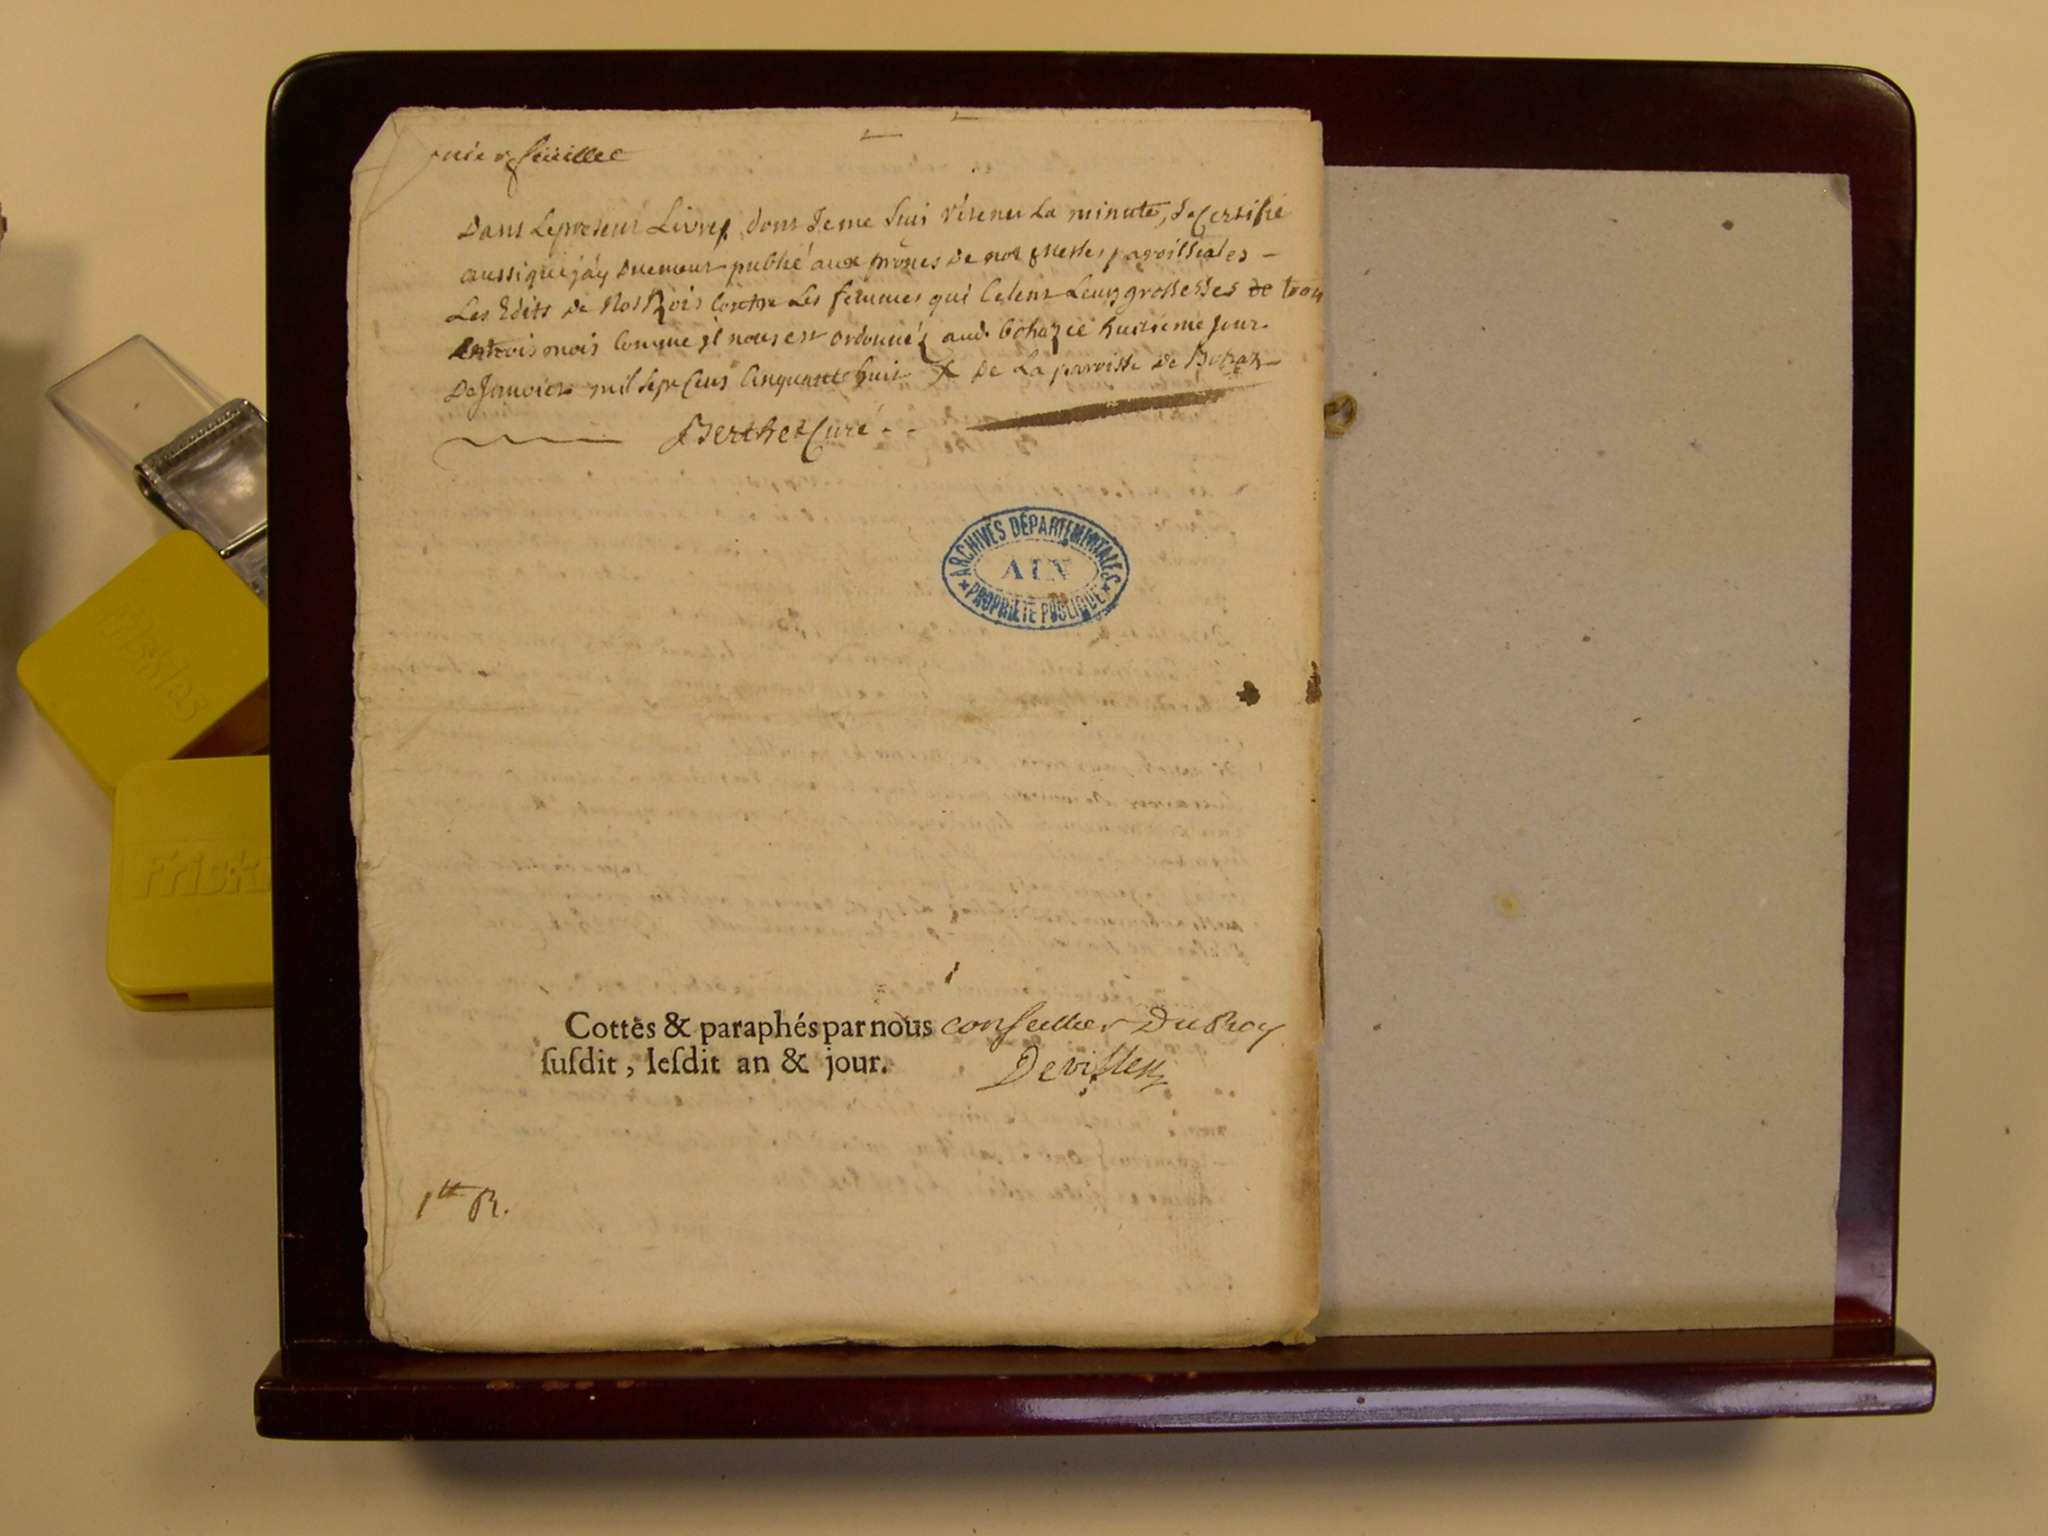 feüillet
Dans Le present Livre, dont Je me suis retenu La minute, Je Certifie
aussi que j'ay duement publié aux prônes de nos Messes paroissiales -
Les Edits de Nos Rois Contre Les femmes qui Celent Leurs grossesses de trois
en trois mois Comme il nous est ordonnéz aud. Bohaz ce huitieme Jour
De Janvier mil sept Cens Cinquante huit de La paroisse de Bohaz
Berthet Curé
ARCHIVES DÉPARTEMENTALES
AIN
PROPRIÉTÉ PUBLIQUE
Cottés & paraphés par nous conseiller Du Roy
ſuſdit, leſdit an & jour.
1tt
Friskies
Friski